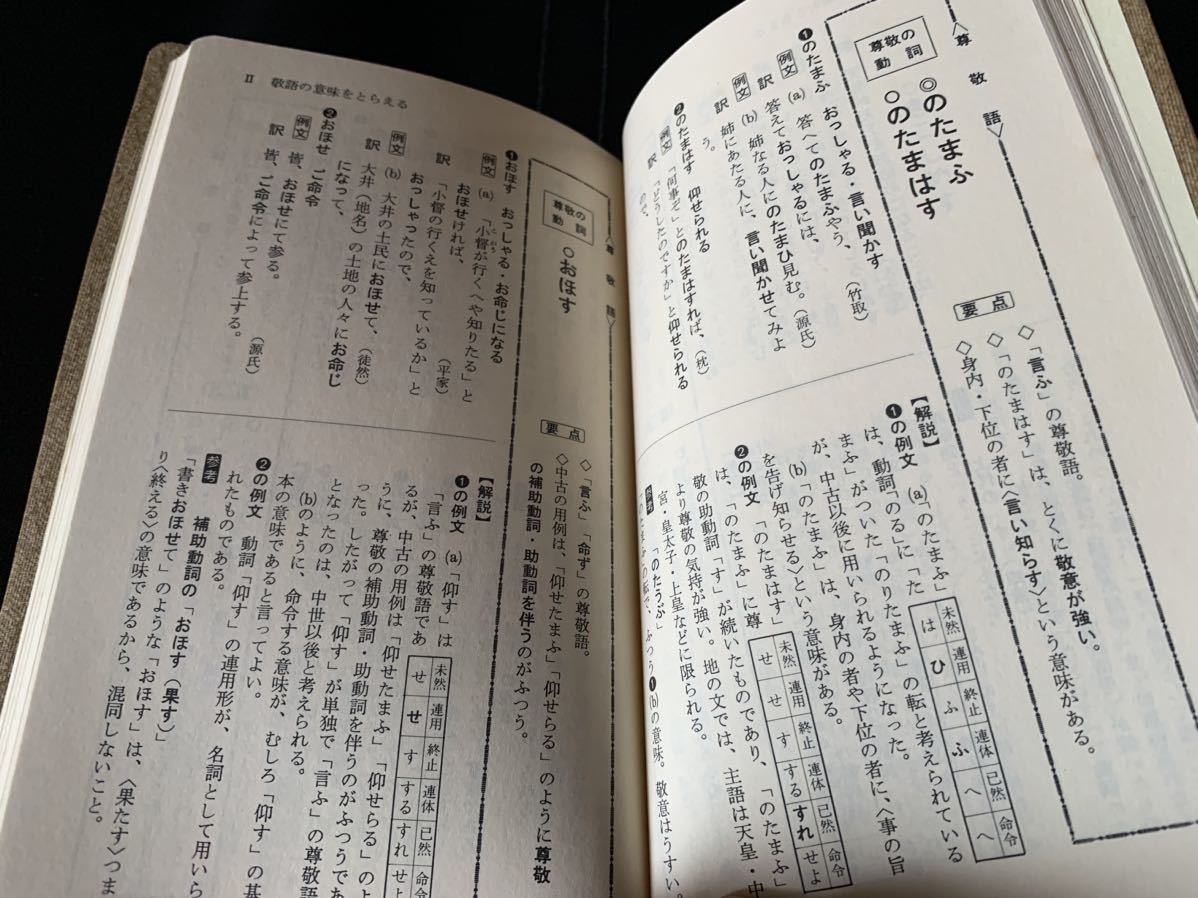 〈尊敬語〉
尊敬の動詞
◎のたまふ
○のたまはす
要点
◇「言ふ」の尊敬語。
◇「のたまはす」は、とくに敬意が強い。
◇身内・下位の者に〈言い知らす〉という意味がある。
❶のたまふ　おっしゃる・言い聞かす
例文 (a) 答へてのたまふやう、（竹取）
訳　答えておっしゃるには、
例文 (b) 姉なる人にのたまひ見む。（源氏）
訳　姉にあたる人に、言い聞かせてみよ
う。
❷のたまはす　仰せられる
例文 「何事ぞ」とのたまはすれば、（枕）
訳　「どうしたのですか」と仰せられる
ので、
【解説】
❶の例文　(a)「のたまふ」
は、動詞「のる」に「た
まふ」がついた「のりたまふ」の転と考えられている
が、中古以後に用いられるようになった。
(b)「のたまふ」は、身内の者や下位の者に、〈事の旨
を告げ知らせる〉という意味がある。
未然 連用 終止 連体 已然 命令
は ひ ふ ふ へ へ
❷の例文　「のたまはす」
は、「のたまふ」に尊
敬の助動詞「す」が続いたものであり、「のたまふ」
より尊敬の気持が強い。地の文では、主語は天皇・中
宮・皇太子・上皇などに限られる。
未然 連用 終止 連体 已然 命令
せ せ す する すれ せよ
参考　「のたうぶ」
「のたまふ」の転で、ふつう❶(b)の意味。敬意はうすい。
II　敬語の意味をとらえる
〈尊敬語〉
尊敬の動詞
○おほす
要点
◇「言ふ」「命ず」の尊敬語。
◇中古の用例は、「仰せたまふ」「仰せらる」のように尊敬
の補助動詞・助動詞を伴うのがふつう。
❶おほす　おっしゃる・お命じになる
例文 (a) 「小督が行くへや知りたる」と
こがう
おほせければ、（平家）
訳　「小督の行くえを知っているか」と
おっしゃったので、
例文 (b) 大井の土民におほせて、（徒然）
訳　大井（地名）の土地の人々にお命じ
になって、
❷おほせ　ご命令
例文 皆、おほせにて参る。（源氏）
訳　皆、ご命令によって参上する。
【解説】
❶の例文　(a)「仰す」は
「言ふ」の尊敬語であ
るが、中古の用例は「仰せたまふ」「仰せらる」のよ
うに、尊敬の補助動詞・助動詞を伴うのがふつうであ
った。したがって「仰す」が単独で「言ふ」の尊敬語
となったのは、中世以後と考えられる。
(b)のように、命令する意味が、むしろ「仰す」の基
本の意味であると言ってよい。
未然 連用 終止 連体 已然 命令
せ せ す する すれ せよ
❷の例文　動詞「仰す」の連用形が、名詞として用いら
れたものである。
参考　補助動詞の「おほす（果す）」
「書きおほせて」のような「おほす」は、〈果たす〉つま
り〈終える〉の意味であるから、混同しないこと。